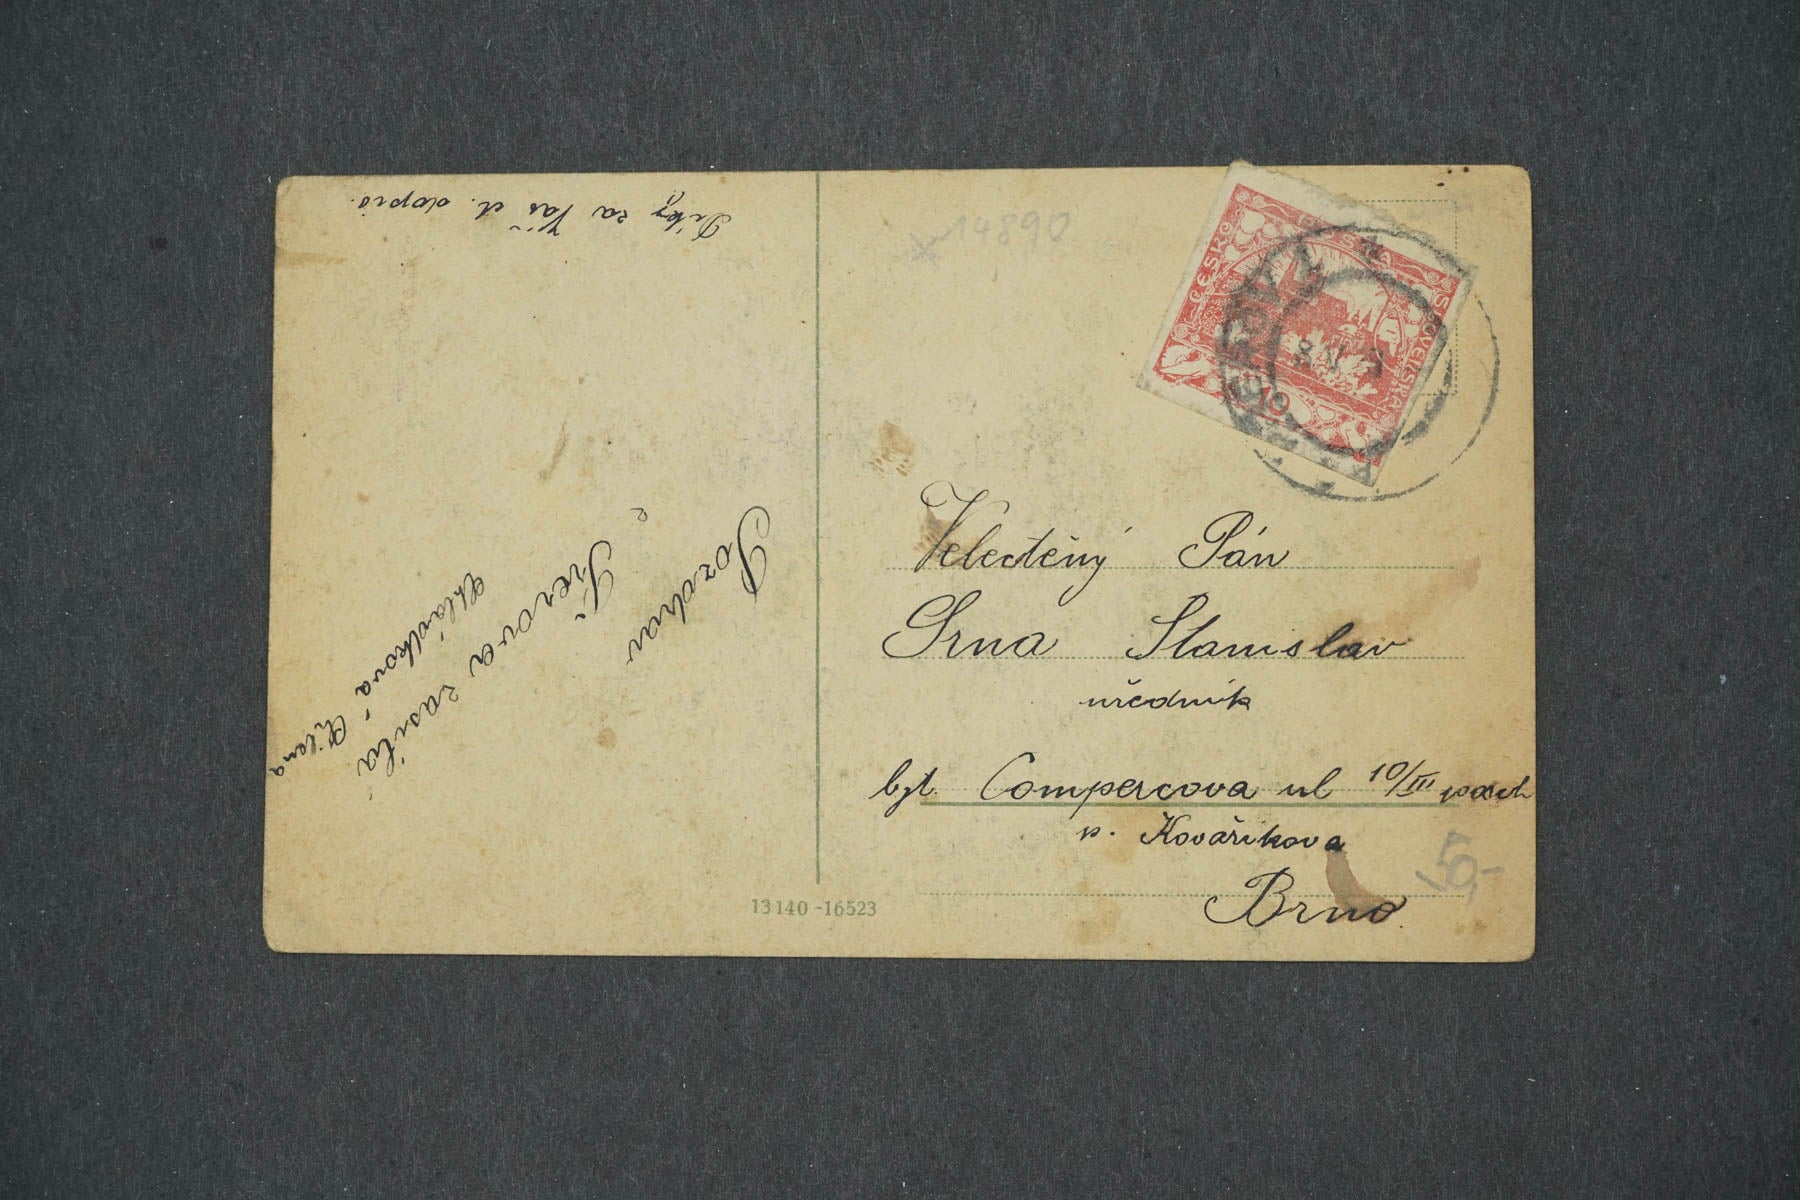 Díky za Váš ct. dopis.
Pozdrav
z Přerova zasílá
Chládkova Milena
14890
ČESKO-SLOVENSKÁ
10
Velectěný Pán
Srna Stanislav
úředník
byt. Compercova ul 10/III posch
p. Kovaříkova
Brno
50,-
13140-16523